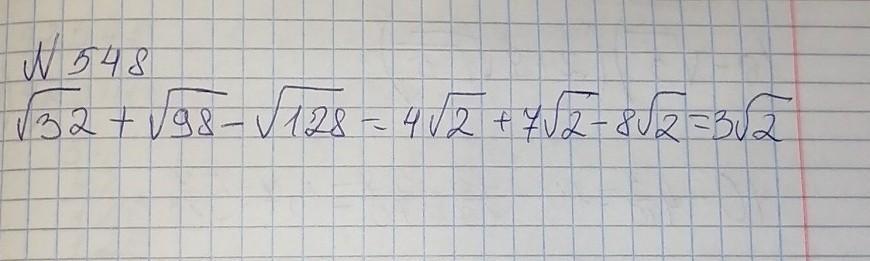 N 548
√32 + √98 - √128 = 4√2 + 7√2 - 8√2 = 3√2